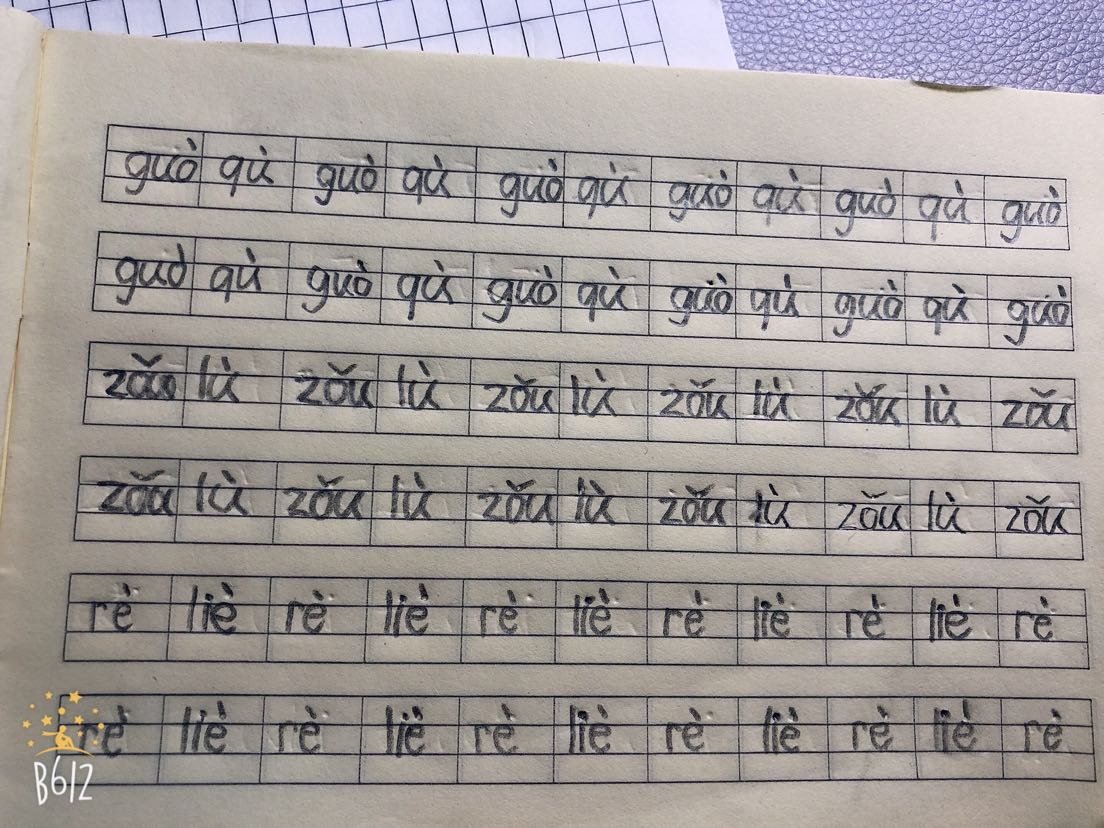 guò qù guò qù guò qù guò qù guò qù guò
guò qù guò qù guò qù guò qù guò qù guò
zǒu lù zǒu lù zǒu lù zǒu lù zǒu lù zǒu
zǒu lù zǒu lù zǒu lù zǒu lù zǒu lù zǒu
rè liè rè liè rè liè rè liè rè liè rè
rè liè rè liè rè liè rè liè rè liè rè
B612